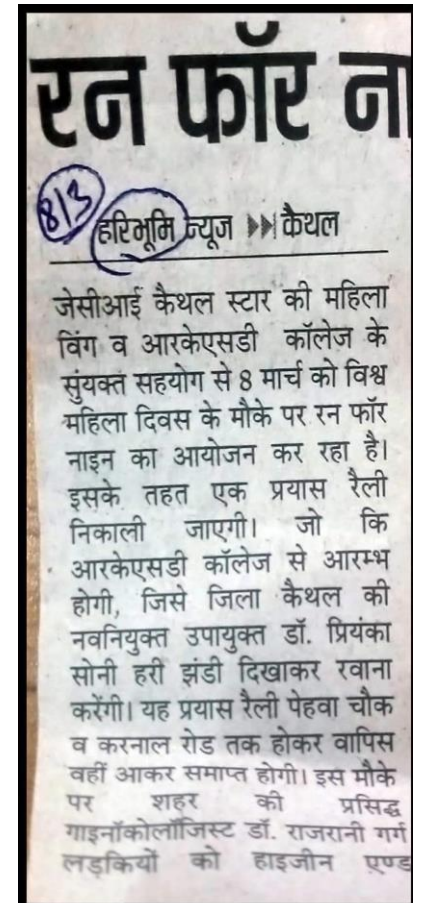 रन फॉर ना
8/3
हरिभूमि न्यूज ▶▶| कैथल
जेसीआई कैथल स्टार की महिला
विंग व आरकेएसडी कॉलेज के
सुंयक्त सहयोग से 8 मार्च को विश्व
महिला दिवस के मौके पर रन फॉर
नाइन का आयोजन कर रहा है।
इसके तहत एक प्रयास रैली
निकाली जाएगी। जो कि
आरकेएसडी कॉलेज से आरम्भ
होगी, जिसे जिला कैथल की
नवनियुक्त उपायुक्त डॉ. प्रियंका
सोनी हरी झंडी दिखाकर रवाना
करेंगी। यह प्रयास रैली पेहवा चौक
व करनाल रोड तक होकर वापिस
वहीं आकर समाप्त होगी। इस मौके
पर शहर की प्रसिद्ध
गाइनॉकोलॉजिस्ट डॉ. राजरानी गर्ग
लड़कियों को हाइजीन एण्ड